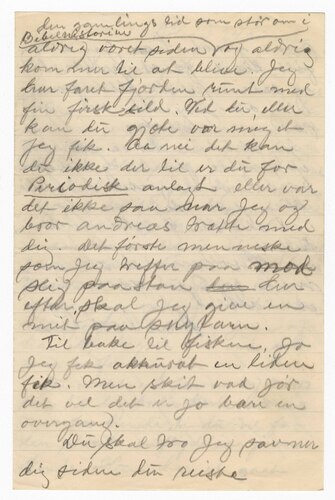 den gamlings tid som stor om i
Bibelhistorien
aldrig voret siden og aldrig
kom mer til at blive. Jeg
har faret fjorden rundt med
fin fersk sild. Ved du eller
kan du gjete vor meget
jeg fik. Aa nei det kan
du ikke der til er du for
Periodisk anlagt eller var
det ikke saa naar Jeg og
bror andreas traff med
dig. det forste menneske
som Jeg treffer paa mod
seig paastan den
efter, skal Jeg give en
smit paa snytaren.
Til bake til fiskene, jo
Jeg fik akkurat en liden
fik. Men skit vad gør
det vel det er jo bare en
overgang.
Du skal tro Jeg savner
dig siden du reiste